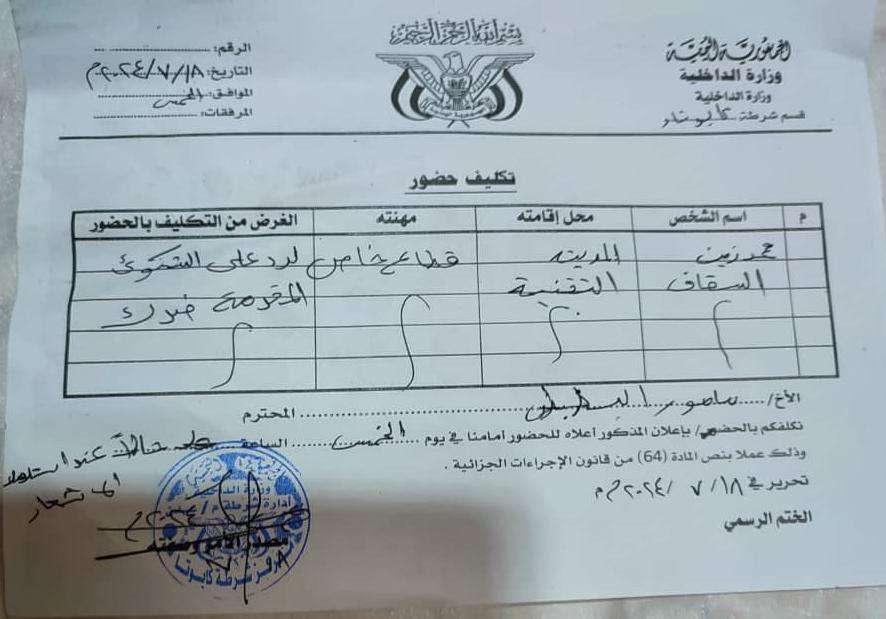 بسم الله الرحمن الرحيم
الجمهورية اليمنية
وزارة الداخلية
وزارة الداخلية
قسم شرطة كابوتا
الرقم:
التاريخ: ٢٠٢٤/٧/١٨م
الموافق: الخميس
المرفقات:
تكليف حضور
م اسم الشخص محل إقامته مهنته الغرض من التكليف بالحضور
محمد زين المدينة قطاع خاص لرد على الشكوى
السقاف التقنية المقدمة ضدك
الأخ/ المحترم
تكلفكم بالحضور/ بإعلان المذكور أعلاه للحضور أمامنا في يوم الخميس الساعة حالاً عند استلام
الاشعار
وذلك عملا بنص المادة (64) من قانون الإجراءات الجزائية .
تحرير في ١٨/ ٧ /٢٠٢٤م م
الختم الرسمي
وزارة الداخلية
إدارة شرطة م/
مركز شرطة كابوتا